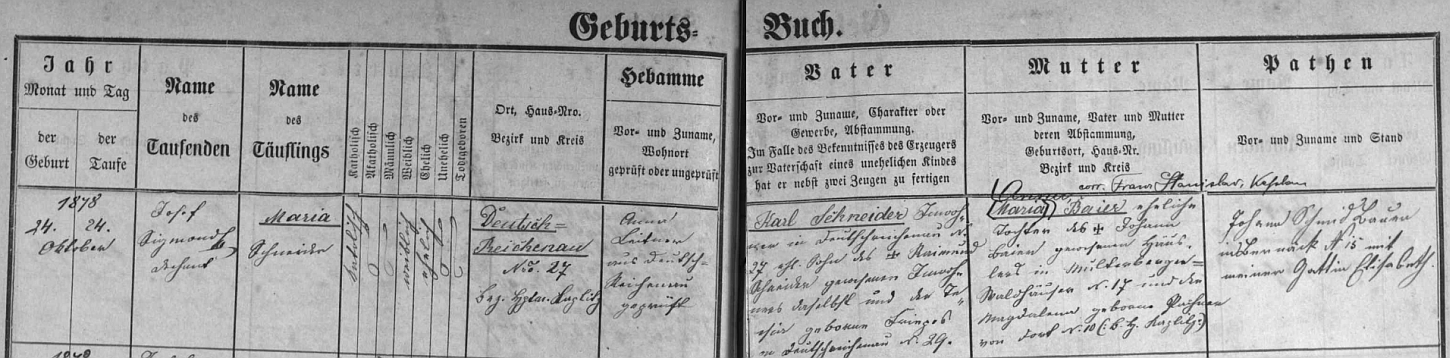 Geburts-Buch.
Jahr
Monat und Tag
der Geburt
der Taufe
Name
des
Taufenden
Name
des
Täuflings
Katholisch
Akatholisch
Männlich
Weiblich
Ehelich
Unehelich
Todtgeboren
Ort, Haus-Nro.
Bezirk und Kreis
Hebamme
Vor- und Zuname,
Wohnort
geprüft oder ungeprüft
Vater
Vor- und Zuname, Charakter oder
Gewerbe, Abstammung.
Im Falle des Bekenntnisses des Erzeugers
zur Vaterschaft eines unehelichen Kindes
hat er nebst zwei Zeugen zu fertigen
Mutter
Vor- und Zuname, Vater und Mutter
deren Abstammung,
Geburtsort, Haus-Nr.
Bezirk und Kreis
Pathen
Vor- und Zuname und Stand
1878
24. 24.
Oktober
Josef
Sigmond
Dechant
Maria
Schneider
katholisch
weiblich
ehelich
Deutsch=
Reichenau
No. 27
Bez. Hptm. Kaplitz
Anna
Leitner
aus Deutsch-
Reichenau
geprüft
Karl Schneider Inwoh-
ner in Deutschreichenau N.
27 ehl. Sohn des ✠ Raimund
Schneider gewesenen Inwoh-
ners daselbst und der
geborne
in Deutschreichenau N. 29.
corr. Franz Stanislav,
Anna
(Maria) Baier eheliche
Tochter des ✠ Johann
Baier gewesenen Häus-
lers in
Waldhäuser N. 17 und der
Magdalena geborne
von dort N. 10 (: b. H. Kaplitz :)
Johann Schmid Bauer
in Bernack N 15 mit
meiner Gattin Elisabeth.
1878